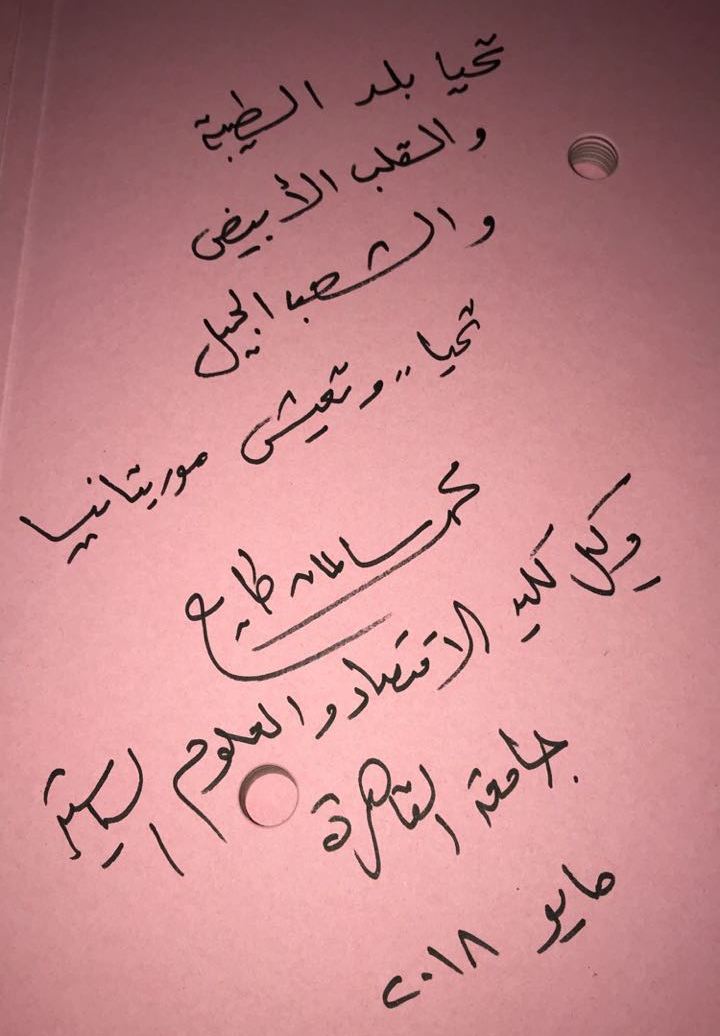 تحيا بلد الطيبة
والقلب الأبيض
والشعب الجميل
تحيا .. وتعيش موريتانيا
محمد سلمان طايع
وكيل كلية الاقتصاد والعلوم السياسية
جامعة القاهرة
مايو ٢٠١٨